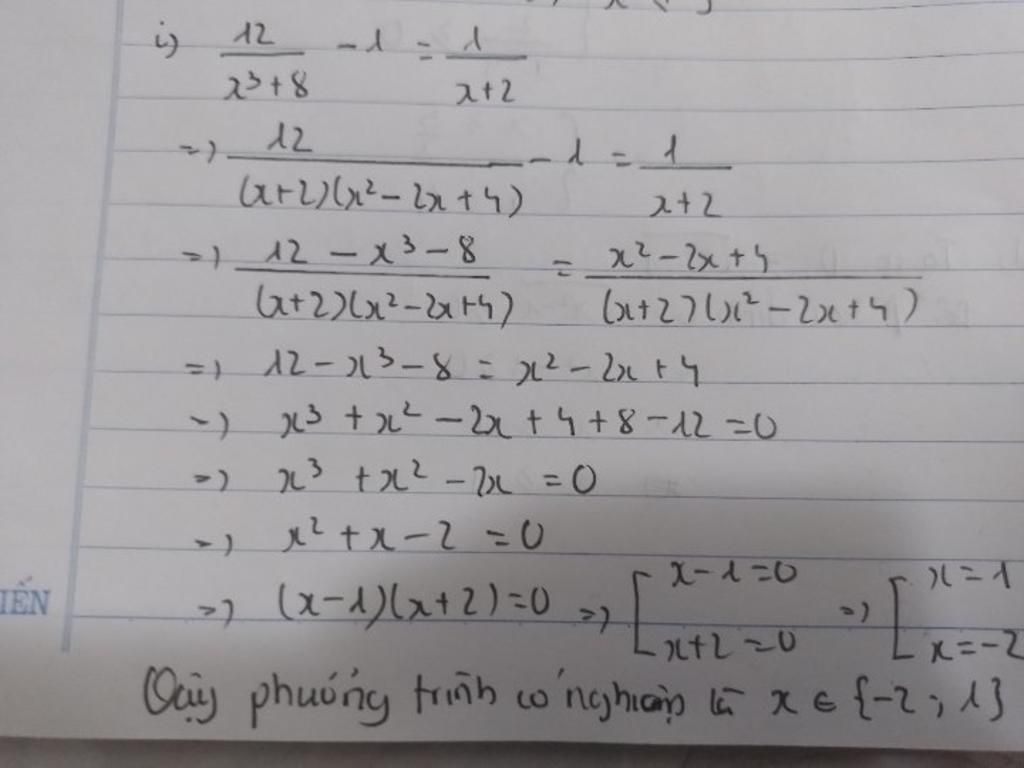 i) 12/(x³+8) - 1 = 1/(x+2)
=> 12/((x+2)(x²-2x+4)) - 1 = 1/(x+2)
=> (12 - x³ - 8)/((x+2)(x²-2x+4)) = (x²-2x+4)/((x+2)(x²-2x+4))
=> 12 - x³ - 8 = x² - 2x + 4
=> x³ + x² - 2x + 4 + 8 - 12 = 0
=> x³ + x² - 2x = 0
=> x² + x - 2 = 0
=> (x-1)(x+2) = 0 => [ x-1=0 ; x+2=0 => [ x=1 ; x=-2
IẾN
Vậy phương trình có nghiệm là x ∈ {-2; 1}